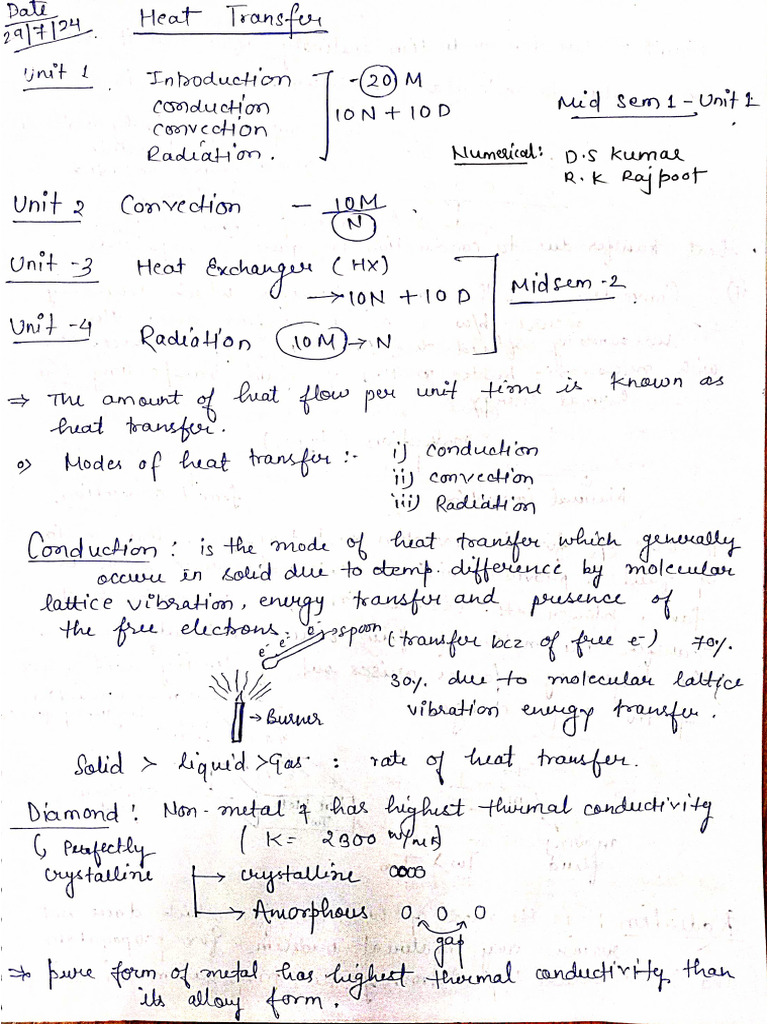 Date
29/7/24.
Heat Transfer
Unit 1 Introduction - 20 M
Conduction 10N + 10D
Convection
Radiation.
Mid Sem 1 - Unit 1
Numerical: D.S Kumar
R.K Rajpoot
Unit 2 Convection - 10M
N .
Unit -3 Heat Exchanger (HX)
→ 10N + 10D
Midsem -2
Unit -4 Radiation 10M → N
⇒ The amount of heat flow per unit time is known as
heat transfer.
⇒ Modes of heat transfer :- i) conduction
ii) convection
iii) Radiation
Conduction : is the mode of heat transfer which generally
occure in solid due to temp. difference by molecular
lattice vibration, energy transfer and presence of
the free electrons.
e⁻ e⁻ e⁻ → spoon
(transfer bcz of free e⁻) 70%.
30% due to molecular lattice
vibration energy transfer.
→ Burner
Solid > liquid > Gas : rate of heat transfer.
Diamond : Non-metal & has highest thermal conductivity
↳ Perfectly (K = 2300 W/mK)
crystalline → crystalline oooo
→ Amorphous O O O
gap
⇒ pure form of metal has highest thermal conductivity than
its alloy form.